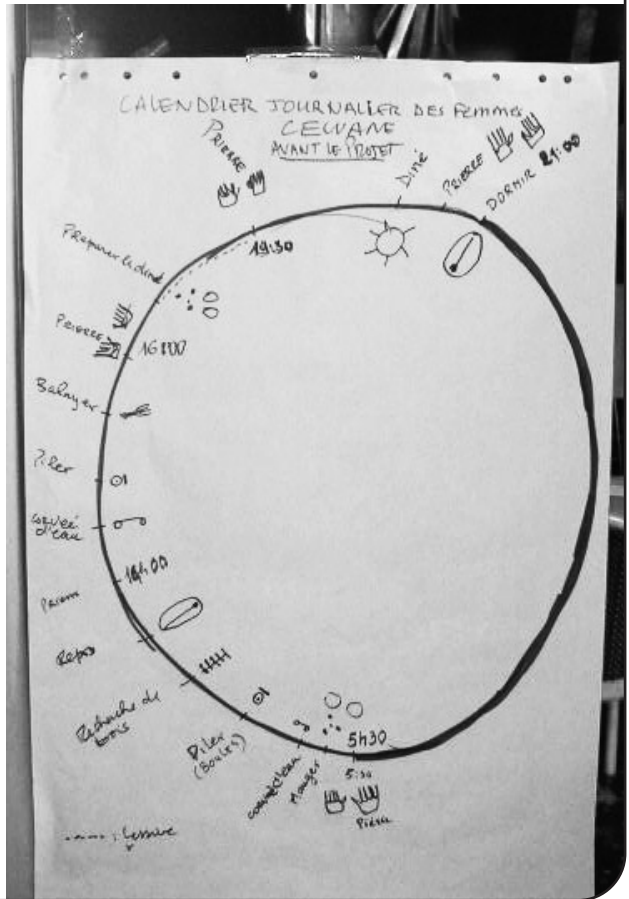 CALENDRIER JOURNALIER DES Femmes
CEWANE
AVANT LE PROJET
PRIERRE
Diné
PRIERRE
DORMIR 21:00
19:30
Préparer le diné
PRIERRE
16H00
Balayer
Piler
corvée
d'eau
14h00
Repos
Recherche de
bois
Piler
(Boules)
corvée d'eau
Manger
5h30
5:30
Prière
----- : Lessive